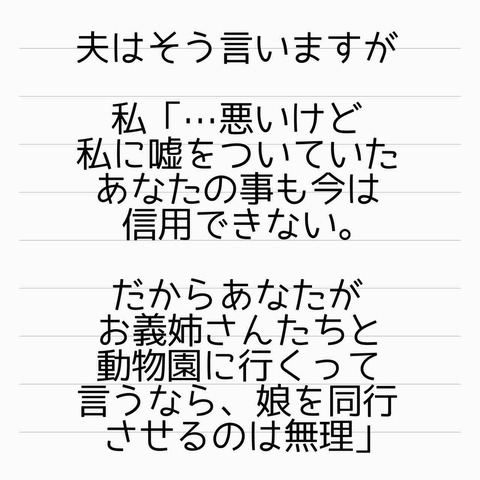 夫はそう言いますが
私「…悪いけど
私に嘘をついていた
あなたの事も今は
信用できない。
だからあなたが
お義姉さんたちと
動物園に行くって
言うなら、娘を同行
させるのは無理」